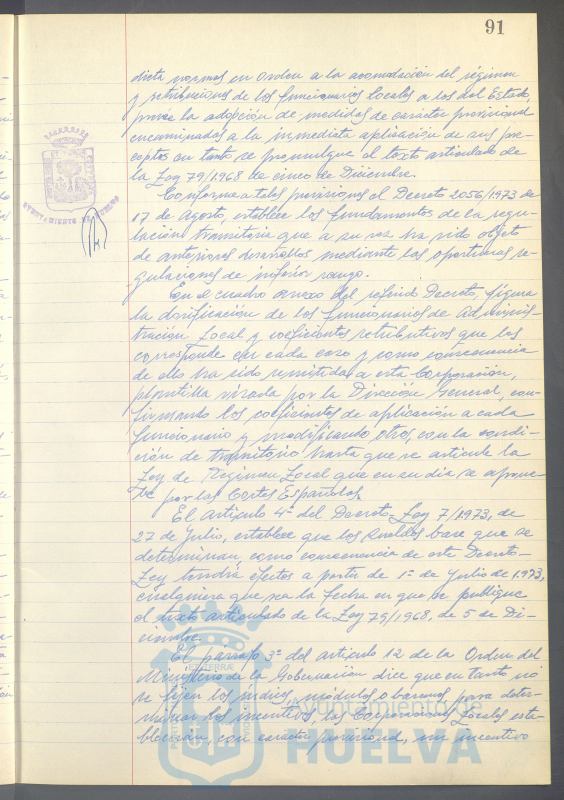 91
dicta normas en orden a la acomodación del régimen
y retribuciones de los funcionarios locales a los del Estado,
prevee la adopción de medidas de carácter provisional
encaminadas a la inmediata aplicación de sus pre-
ceptos en tanto se promulgue el texto articulado de
la Ley 79/1968 de cinco de Diciembre.
Conforme a tales previsiones el Decreto 2056/1973 de
17 de Agosto, establece los fundamentos de la regu-
lación transitoria que a su vez ha sido objeto
de anteriores desarrollos mediante las oportunas re-
gulaciones de inferior rango.
En el cuadro anexo del referido Decreto, figura
la dosificación de los funcionarios de Adminis-
tración Local y coeficientes retributivos que les
corresponde en cada caso y como consecuencia
de ello ha sido remitida a esta Corporación,
plantilla visada por la Dirección General, con-
firmando los coeficientes de aplicación a cada
funcionario y modificando otros, con la condi-
ción de transitorio hasta que se articule la
Ley de Régimen Local que en su día se aprue-
be por las Cortes Españolas.
El artículo 4º del Decreto-Ley 7/1973, de
27 de Julio, establece que los sueldos base que se
determinan, como consecuencia de este Decreto-
Ley tendrá efectos a partir de 1º de Julio de 1.973,
cualquiera que sea la fecha en que se publique
el texto articulado de la Ley 79/1968, de 5 de Di-
ciembre.
El párrafo 3º del artículo 12 de la Orden del
Ministerio de la Gobernación dice que en tanto no
se fijen los índices, módulos o baremos para deter-
minar los incentivos, las Corporaciones Locales esta-
blecerán, con carácter provisional, un incentivo
Ayuntamiento de
HUELVA